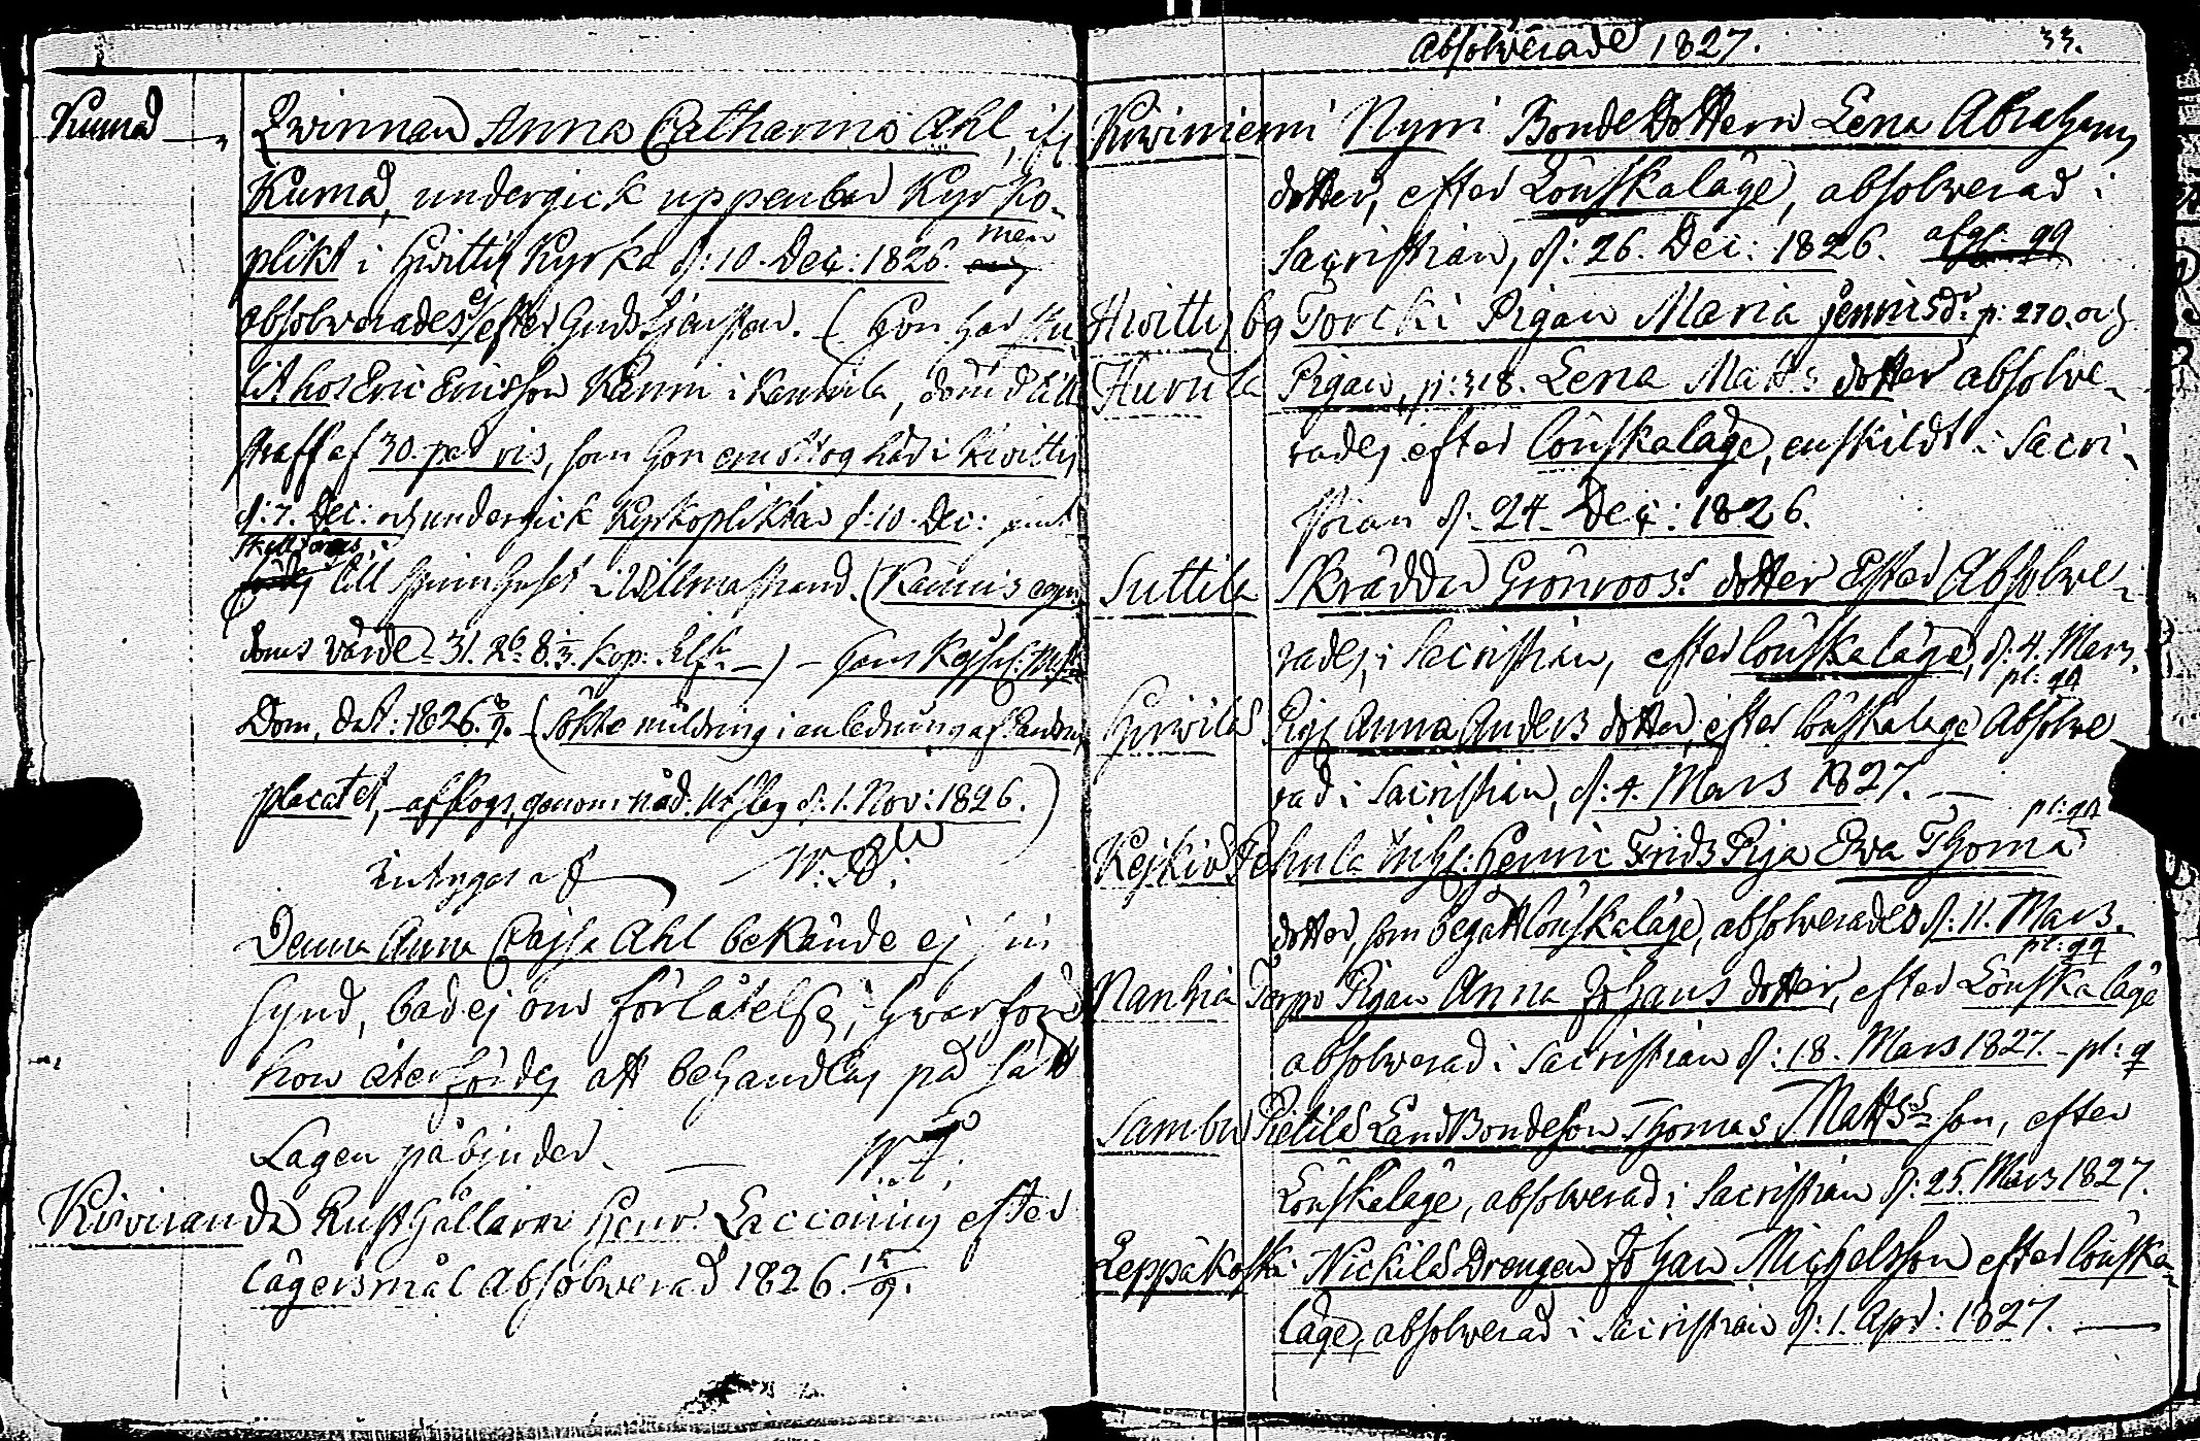 Kumo Qwinnan Anna Catharina Ahl, ifr.
Kumo, undergick uppenbar Kyrko-
plikt i Hwittis Kyrka d: 10. Dec: 1826. men
absolverades ej efter Gudstjensten. (Hon har stu-
lit hos Eric Ericsson Kämni i
straff af 30. par ris, som hon emottog här i Hwittis
d: 7. Dec: och undergick Kyrkoplikten d: 10. Dec:
till Spinnhuset i Willmastrand. (Kämnis egen-
doms värde 31. kop. Silf.) – Hans Kejserl: Maj:ts
Dom, dat: 1826. (sökte mildring i anledning af
placatet, – afslogs, genom nåd. Utslag d. 1. Nov: 1826.)
intygas af W.
Denna Anna Cajsa Ahl bekände ej sin
synd, bad ej om förlåtelse, hvarföre
hon återfördes att behandlas på sätt
Lagen påbjuder. — W.
Kiviranda Rusthållaren Henr. Lacconius efter
lägersmål Absolverad 1826.
Absolverade 1827. 33.
Kiviniemi Nyni Bonde dottern Lena Abrahams
dotter, efter Lönskaläge, absolverad i
Sacristian, d: 26. Dec: 1826.
Hwittis by Torcki Pigan Maria Jennisdr. p: 270. och
Huru la Pigan, p: 318. Lena Matts dotter absolve-
rades efter lönskaläge, enskildt i Sacri-
stian d: 24. Dec: 1826.
Suttila Skräddar Grönroos dotter Ester Absolve-
rades i Sacristian, efter lönskaläge, d: 4. Mars.
pl: qq
Pig. Anna Anders dotter, efter lönskaläge Absolve-
rad i Sacristian, d: 4. Mars 1827. —
pl: qq
Kejkiö Pehula Inhs: Henric Frids Piga Ewa Thomæ
dotter, som begått lönskaläge, absolverades d: 11. Mars.
pl: qq
Nanhia Torpo Pigan Anna Johans dotter, efter Lönskaläge
absolverad i Sacristian d: 18. Mars 1827. – pl: q
Sambu Pietilä LandBondeson Thomas Matts son, efter
Lönskaläge, absolverad i Sacristian d: 25. Mars 1827.
Leppäkoski Nickilä Drengen Johan Michelsson efter lönska-
läge, absolverad i Sacristian d: 1. Apr: 1827. —